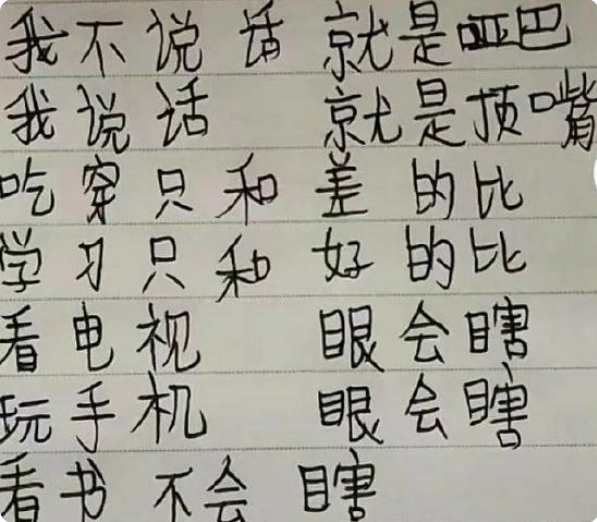 我不说话 就是哑巴
我说话 就是顶嘴
吃穿只和差的比
学习只和好的比
看电视 眼会瞎
玩手机 眼会瞎
看书不会瞎